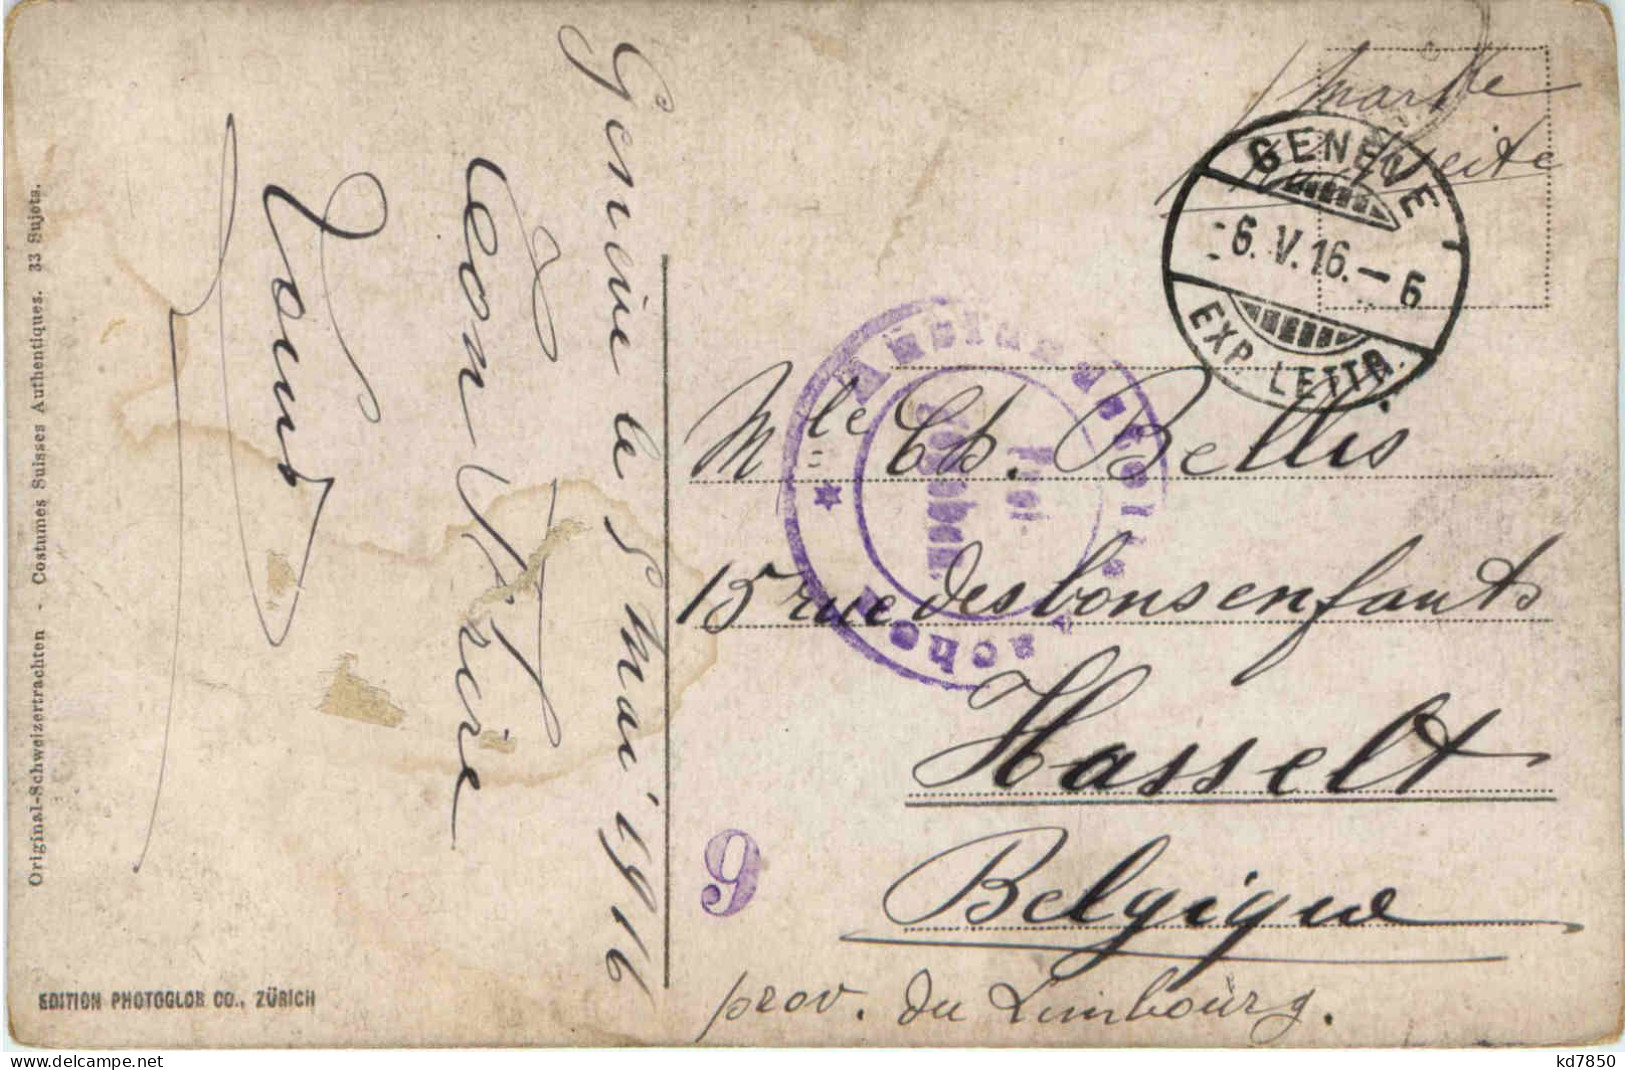 Genève le 5 Mai 1916
Léon
Original-Schweizertrachten - Costumes Suisses Authentiques. 33 Sujets.
EDITION PHOTOGLOB CO., ZÜRICH
Marke
GENÈVE 1
-6.V.16.-6
EXP. LETTR.
Auslands-
Frei-
gegeben
Mlle Ch. Bellis
15 rue des bons enfants
Hasselt
Belgique
prov. du Limbourg.
9
kd7850
delcampe.net